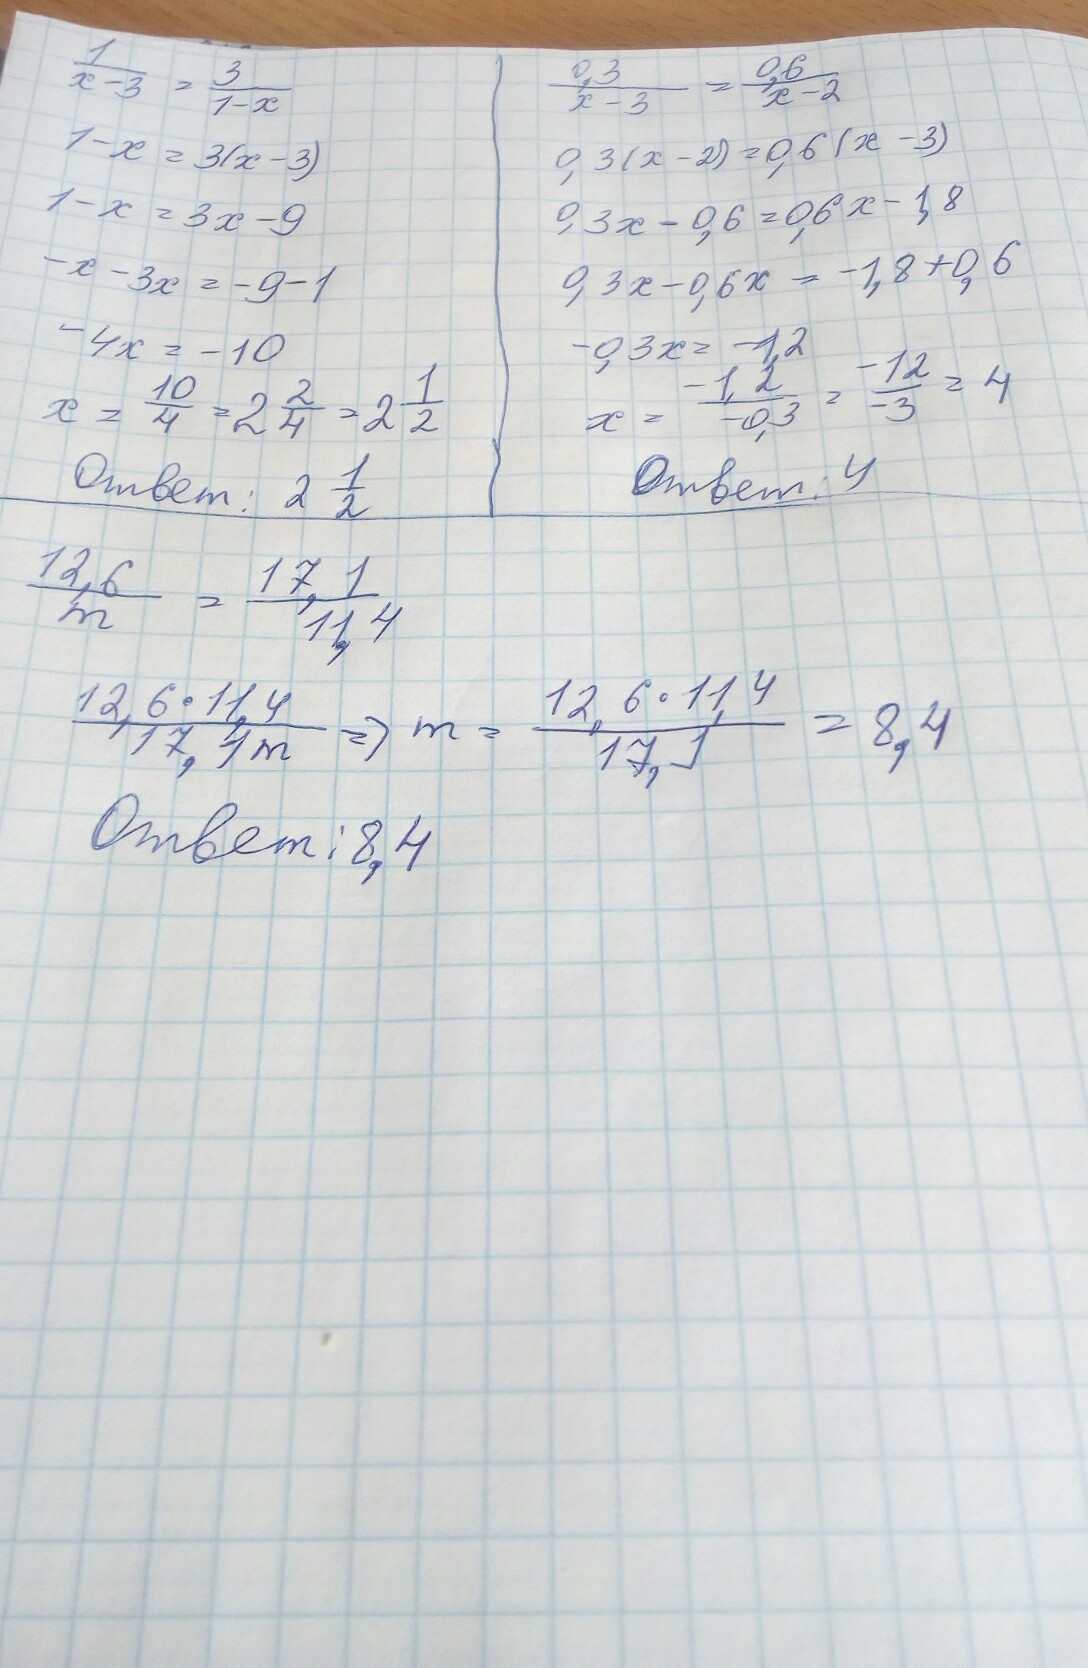 1/(x-3) = 3/(1-x)
1-x = 3(x-3)
1-x = 3x-9
-x-3x = -9-1
-4x = -10
x = 10/4 = 2 2/4 = 2 1/2
Ответ: 2 1/2
0,3/(x-3) = 0,6/(x-2)
0,3(x-2) = 0,6(x-3)
0,3x-0,6 = 0,6x-1,8
0,3x-0,6x = -1,8+0,6
-0,3x = -1,2
x = -1,2/-0,3 = -12/-3 = 4
Ответ: 4
12,6/m = 17,1/11,4
12,6·11,4/17,1m => m = 12,6·11,4/17,1 = 8,4
Ответ: 8,4